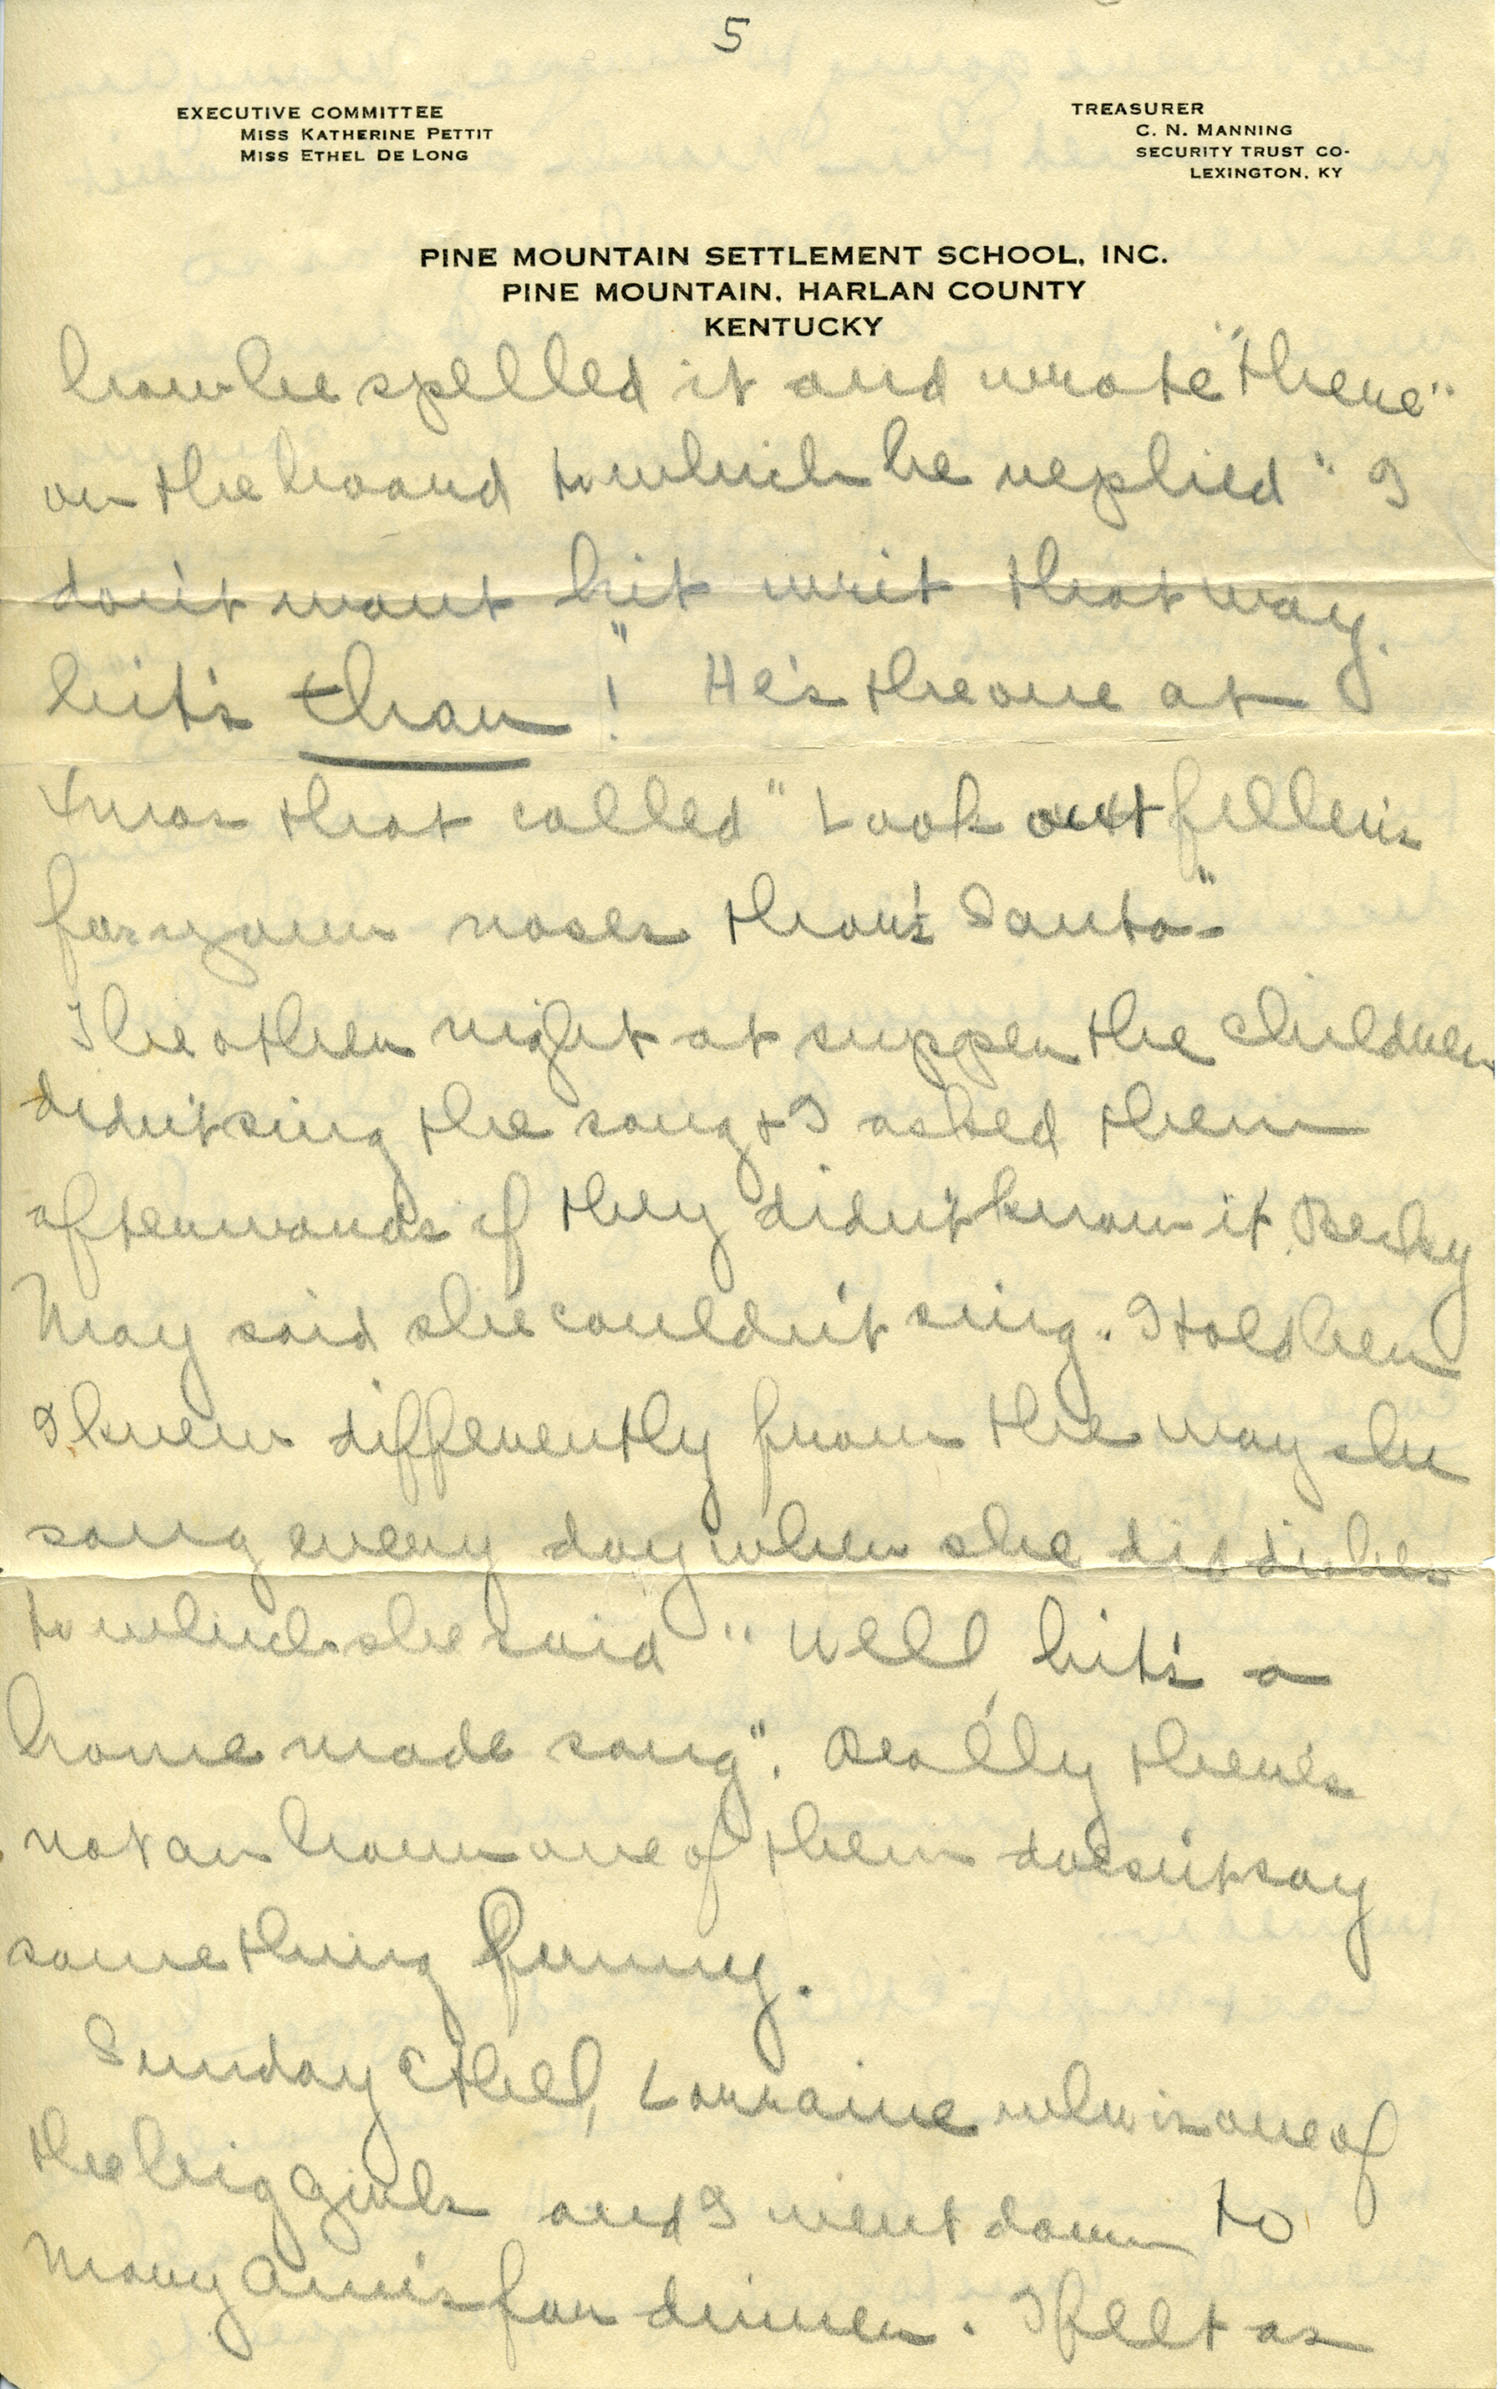 5
EXECUTIVE COMMITTEE
MISS KATHERINE PETTIT
MISS ETHEL DE LONG
TREASURER
C. N. MANNING
SECURITY TRUST CO.
LEXINGTON, KY
PINE MOUNTAIN SETTLEMENT SCHOOL, INC.
PINE MOUNTAIN, HARLAN COUNTY
KENTUCKY
how he spelled it and wrote "there"
on the board to which he replied "I
don't want hit writ that way.
hit's thar!" He's the one at
Xmas that called "Look out feller's
for your noses thar's Santa"
The other night at supper the children
didn't sing the song & I asked them
afterwards if they didn't know it. Becky
May said she couldn't sing. I told her
I knew differently from the way she
sang every day when she did dishes
to which she said "Well, hit's a
home made song". Really there's
not an hour one of them doesn't say
something funny.
Sunday Ethel, Lorraine who is one of
the big girls and I went down to
Mary Ann's for dinner. I felt as